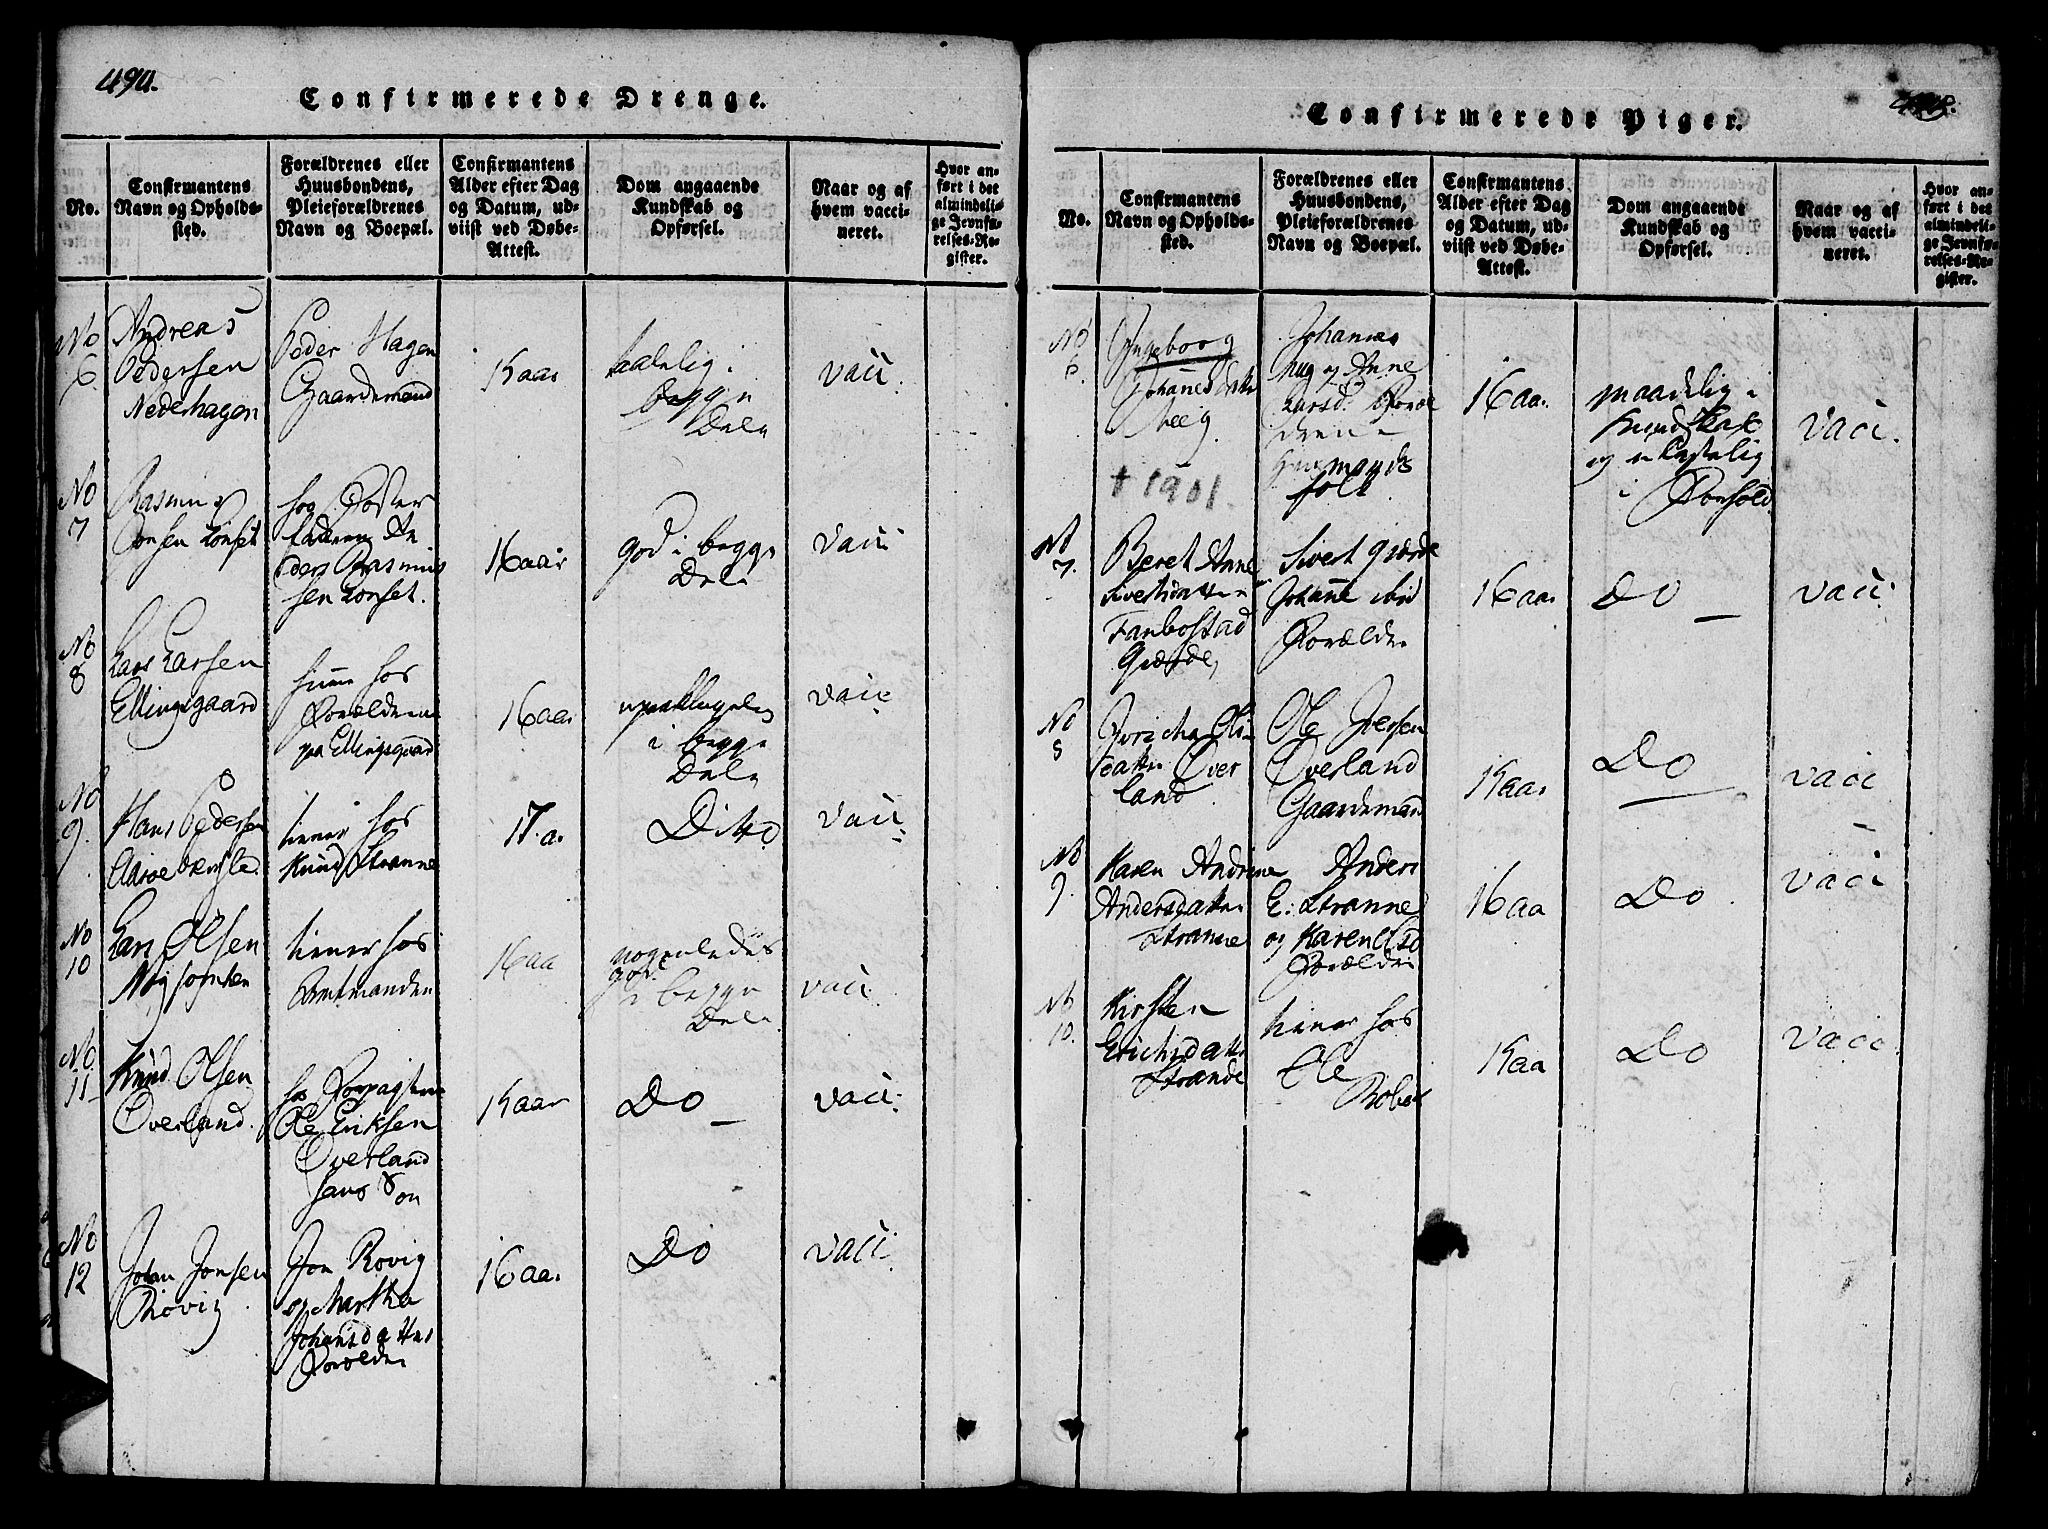 494.
Confirmerede Drenge.
No.
Confirmantens
Navn og Opholds-
sted.
Forældrenes eller
Huusbondens,
Pleieforældrenes
Navn og Boepæl.
Confirmantens
Alder efter Dag
og Datum, ud-
viist ved Døbe-
Attest.
Dom angaaende
Kundskab og
Opførsel.
Naar og af
hvem vacci-
neret.
Hvor an-
ført i det
almindeli-
ge Jevnfø-
relses-Re-
gister.
No
6
Andreas
Pedersen
Nederhagen
Peder Hagen
Gaardemand
15 aar
taalelig i
begge
Dele
vacc.
No
7
Rasmus
Jonsen Lønset
hos Foster
faderen An
ders Rasmus
sen Lønset.
16 aar
god i begge
Dele
vacc
No
8
Lars Larsen
Ellingsgaard
hos
Forældrene
paa Ellingsgaard
16 aar
i begge
Dele
vacc.
No
9.
Hans Pedersen
tiener hos
Knud Stranne
17. a.
Ditto
vacc.
No
10
Lars Olsen
tiener hos
Amtmanden
16 aa
nogenledes
god
i begge
Dele
vacc.
No
11
Knud Olsen
Øverland.
hos
Ole Eriksen
Øverland
hans Søn
15 aar
Do
vacc.
No
12
Johan Jonsen
Røvig
Jon Røvig
og Martha
Johansdatter
Forældre
16 aa.
Do
vacc.
Confirmerede Piger.
No.
Confirmantens
Navn og Opholds-
sted.
Forældrenes eller
Huusbondens,
Pleieforældrenes
Navn og Boepæl.
Confirmantens
Alder efter Dag
og Datum, ud-
viist ved Døbe-
Attest.
Dom angaaende
Kundskab og
Opførsel.
Naar og af
hvem vacci-
neret.
Hvor an-
ført i det
almindeli-
ge Jevnfø-
relses-Re-
gister.
No
6.
Ingeborg
Johannesdatter
† 1901.
Johannes
og Anne
Larsd. Foræl
drene
Huusmands
folk
16 aa.
maadelig i
Kundskab
og ulastelig
i Forhold
vacc.
No
7.
Beret Anne
Sivertsdatter
Fanbostad
Gierde,
Sivert Gierde
Johanne ibid
Forældre
16 aar
Do
vacc.
No
8
Giricha Ols
datter Øver
land
Ole Iversen
Øverland
Gaardemand
15 aar
Do
vacc
No
9.
Karen Andrine
Andersdatter
Stranne
Anders
E: Stranne
og Karen
Forældre
16 aa
Do
vacc
No
10.
Kirsten
Erichsdatter
Strande
tiener hos
Ole
15 aa
Do
vacc.